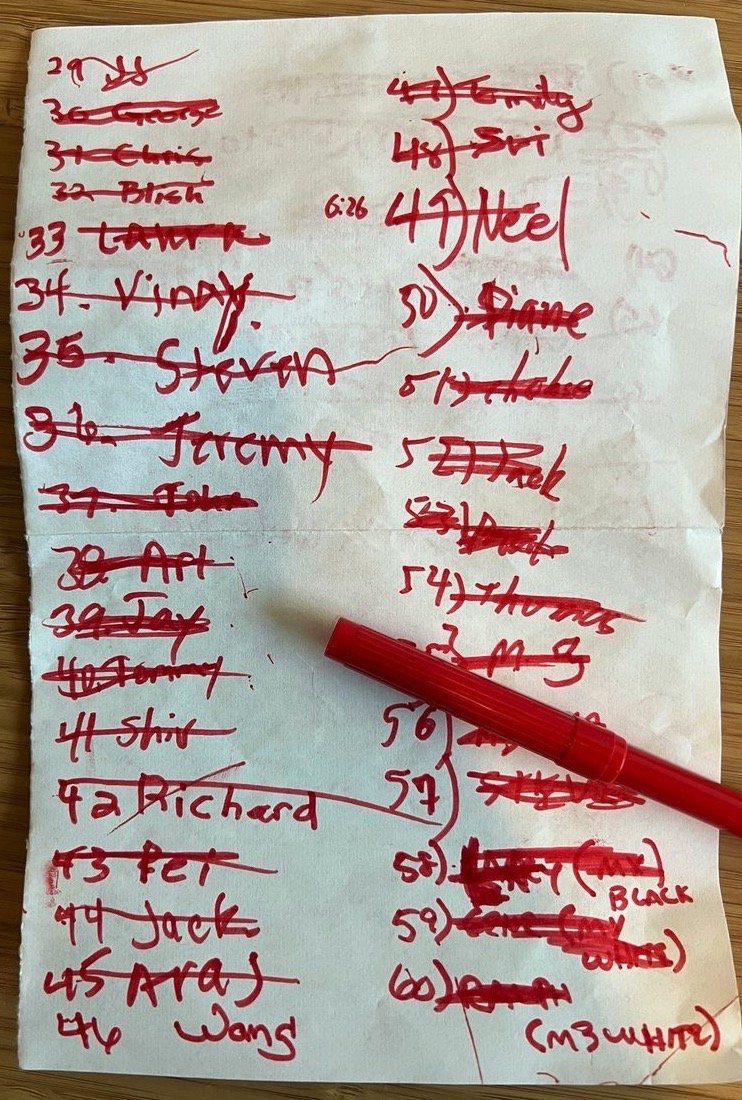 29 JJ
30 George
31 Chris
32 Blish
33 Laura
34. Vinay
35. Steven
36. Jeremy
37. John
38. Art
39. Jay
40. Tommy
41 Shir
42 Richard
43 Pei
44 Jack
45 Araj
46 Wang
47) Emily
48) Sri
6:26 49) Neel
50) Diane
51)
52)
53)
54) Thomas
M3
56
57
58) (MX)
BLACK
59) (MY
WHITE)
60)
(M3 WHITE)